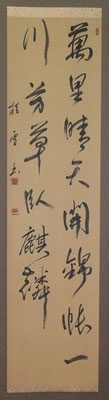 萬里晴天開錦帳一
川芳草臥麒麟